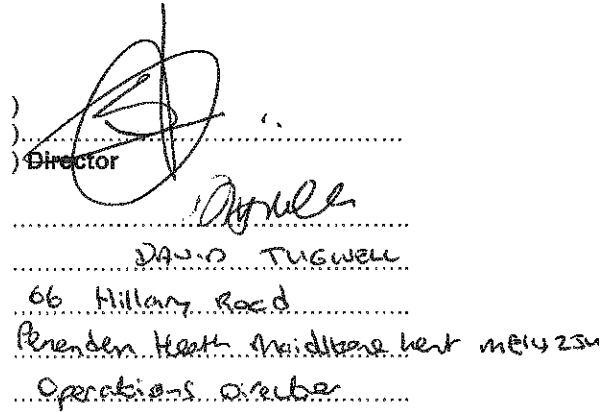 )
)
) Director
DAVID TUGWELL
66 Hillary Road
Penenden Heath Maidstone Kent ME14 2JW
Operations Director